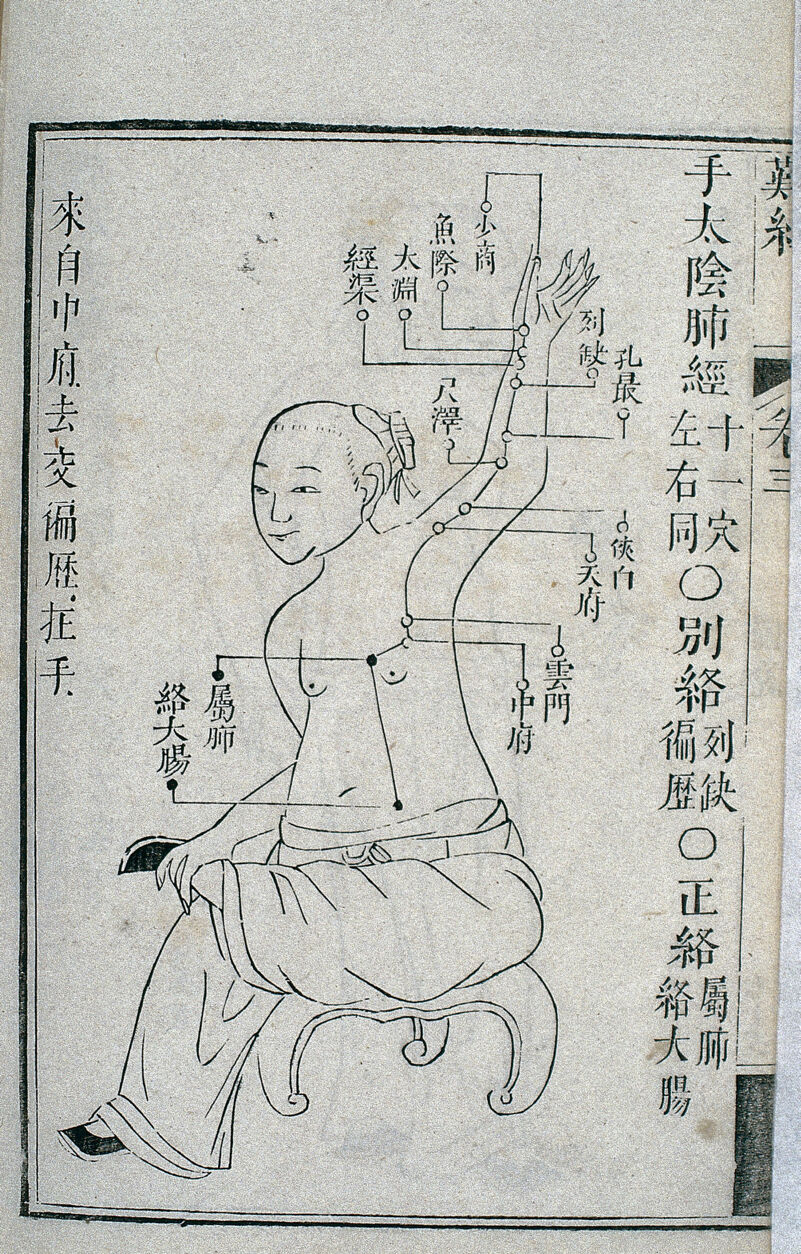 難經
卷三
手太陰肺經 十一穴 左右同 〇 別絡 列缺 徧歷 〇 正絡 屬肺 絡大腸
少商
魚際
太淵
經渠
列缺
孔最
尺澤
俠白
天府
雲門
中府
屬肺
絡大腸
來自中府去交徧歷在手